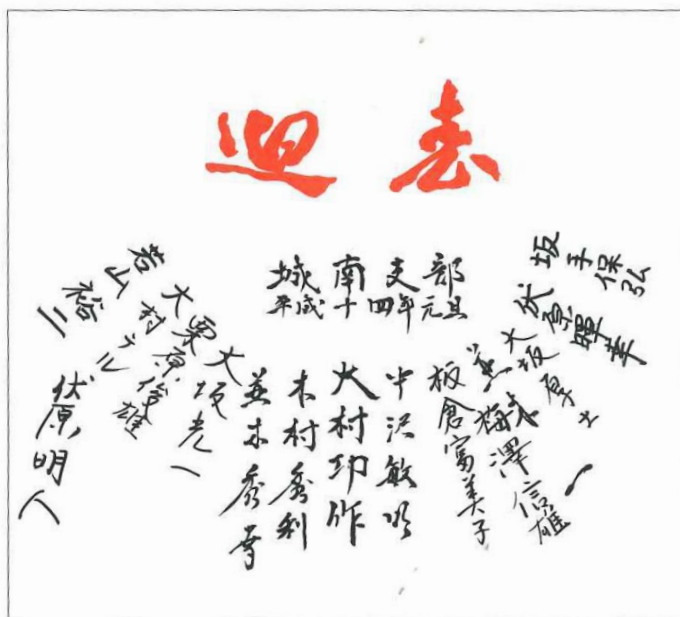 迎春
城南支部
平成十四年元旦
坂手保弘
大坂厚士
梅澤信雄
板倉富美子
中沢敏明
大村印作
木村秀利
並木秀
大坂光一
栗原俊雄
大村ナル
若山裕三
伏原明人